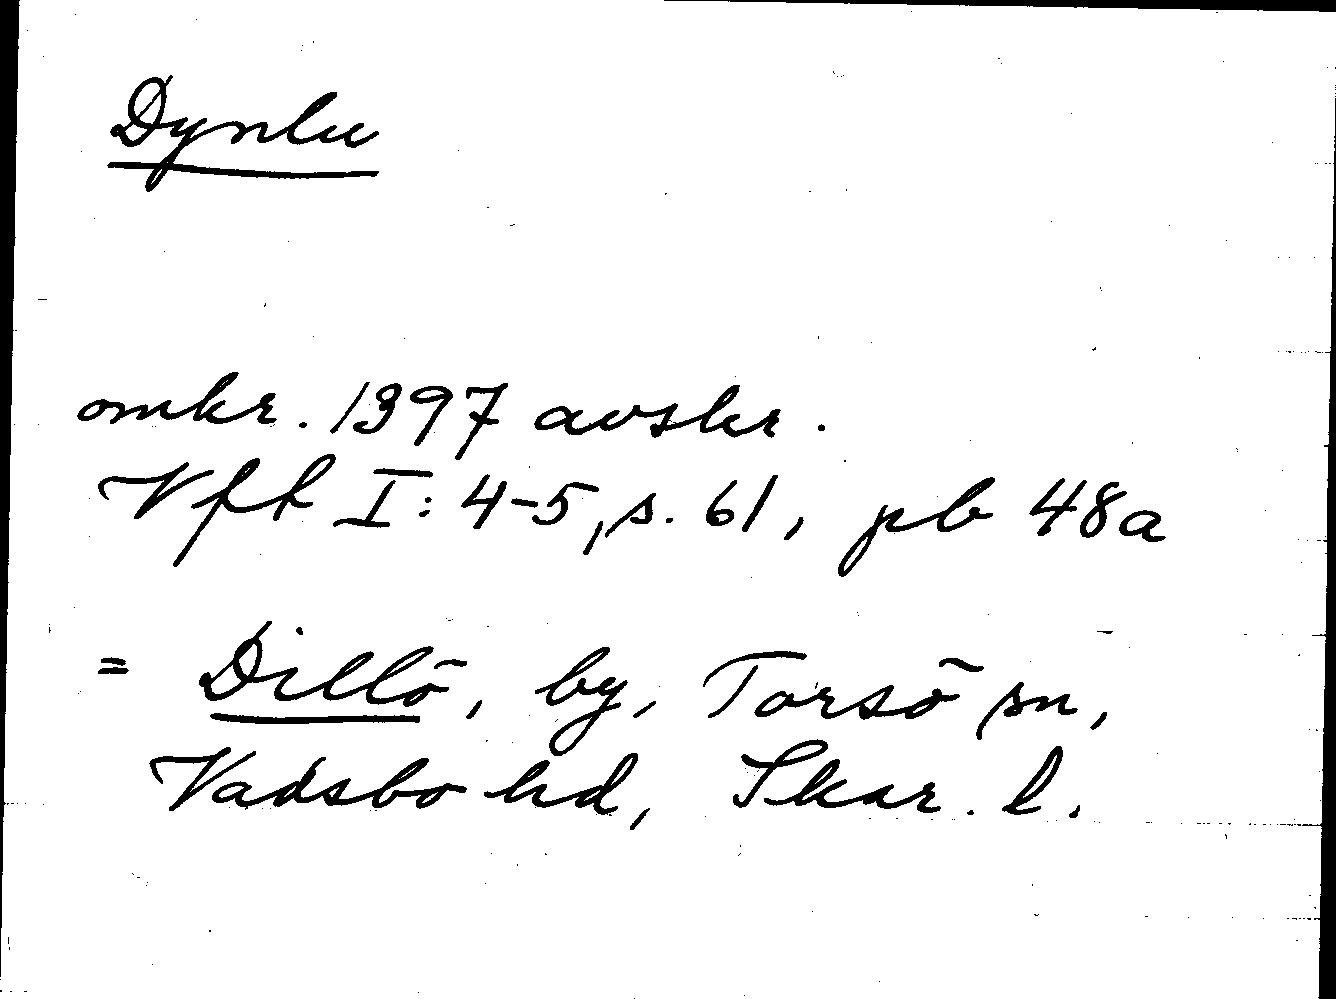 Dynlu
omkr. 1397 avskr.
Vft I: 4-5, s. 61, pb 48a
= Dillö, by, Torsö sn,
Vadsbo hd, Skar. l.